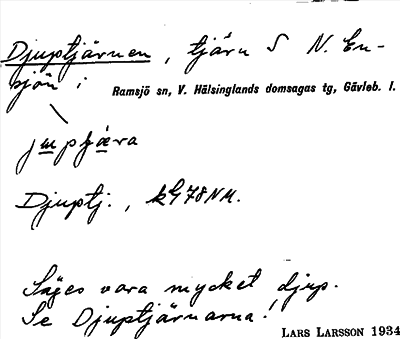 Djuptjärnen, tjärn S N. En-
sjön i
Ramsjö sn, V. Hälsinglands domsagas tg, Gävleb. l.
Djuptj., kG78NM.
Säges vara mycket djup.
Se Djuptjärnarna!
LARS LARSSON 1934